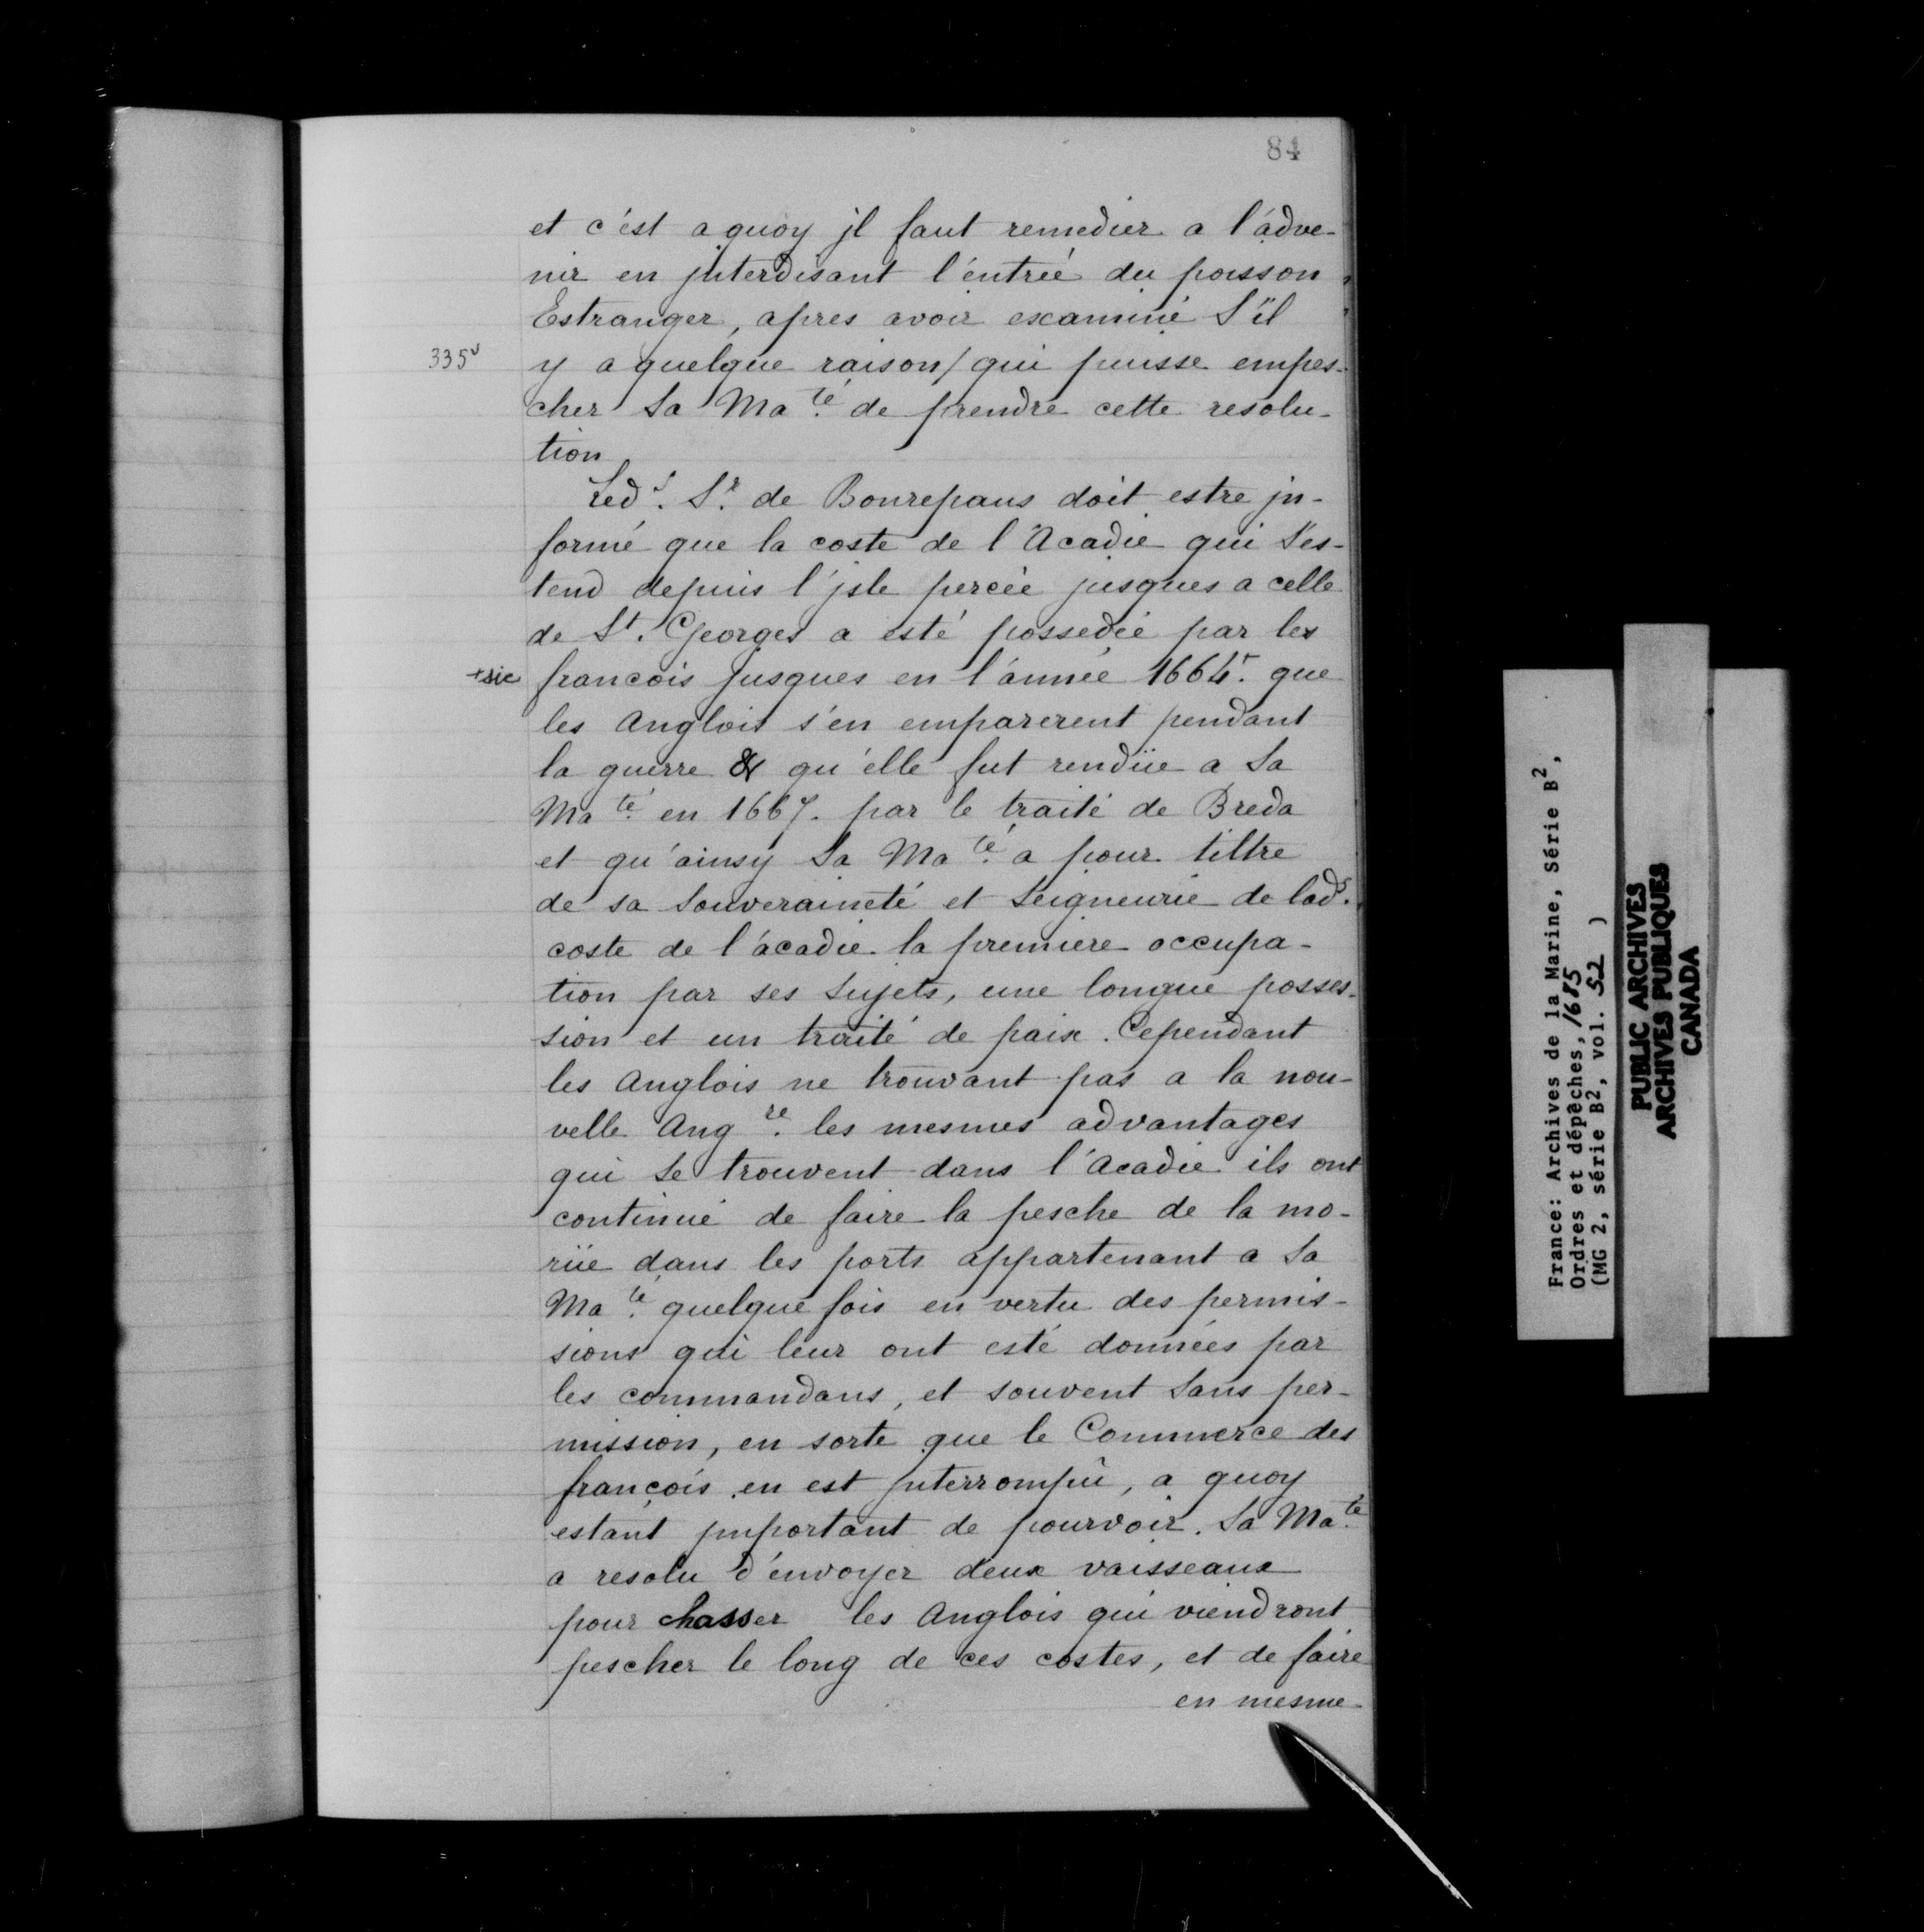 84
et c'est a quoy jl faut remedier a l'adve-
nir en jnterdisant l'entrée du poisson
Estranger, apres avoir examiné S'il
335v y a quelque raison/ qui puisse empes-
cher Sa Ma.té de prendre cette resolu-
tion
Led.t S.r de Bonrepaus doit estre jn-
formé que la coste de l'Acadie qui S'es-
tend depuis l'jsle percée jusques a celle
de St. Georges a esté possedée par les
+sic francois jusques en l'année 1664+. que
les Anglois s'en emparerent pendant
la guerre & qu'elle fut rendüe a Sa
Ma.té en 1667. par le traité de Breda
et qu'ainsy Sa Ma.té a pour tiltre
de sa Souveraineté et Seigneurie de lad.
coste de l'acadie la premiere occupa-
tion par ses Sujets, une longue posses-
sion et un traité de paix. Cependant
les Anglois ne trouvant pas a la nou-
velle Ang.re les mesmes advantages
qui Se trouvent dans l'Acadie ils ont
continué de faire la pesche de la mo-
rüe dans les ports appartenant a Sa
Ma.té quelque fois en vertu des permis-
sions qui leur ont esté données par
les commandans, et souvent Sans per-
mission, en sorte que le Commerce des
françois en est jnterrompû, a quoy
estant jmportant de pourvoir. Sa Ma.té
a resolu d'envoyer deux vaisseaux
pour chasser les Anglois qui viendront
pescher le long de ces costes, et de faire
en mesme
France: Archives de la Marine, Série B2,
Ordres et dépêches, 1685
(MG 2, série B2, vol. 52 )
PUBLIC ARCHIVES
ARCHIVES PUBLIQUES
CANADA